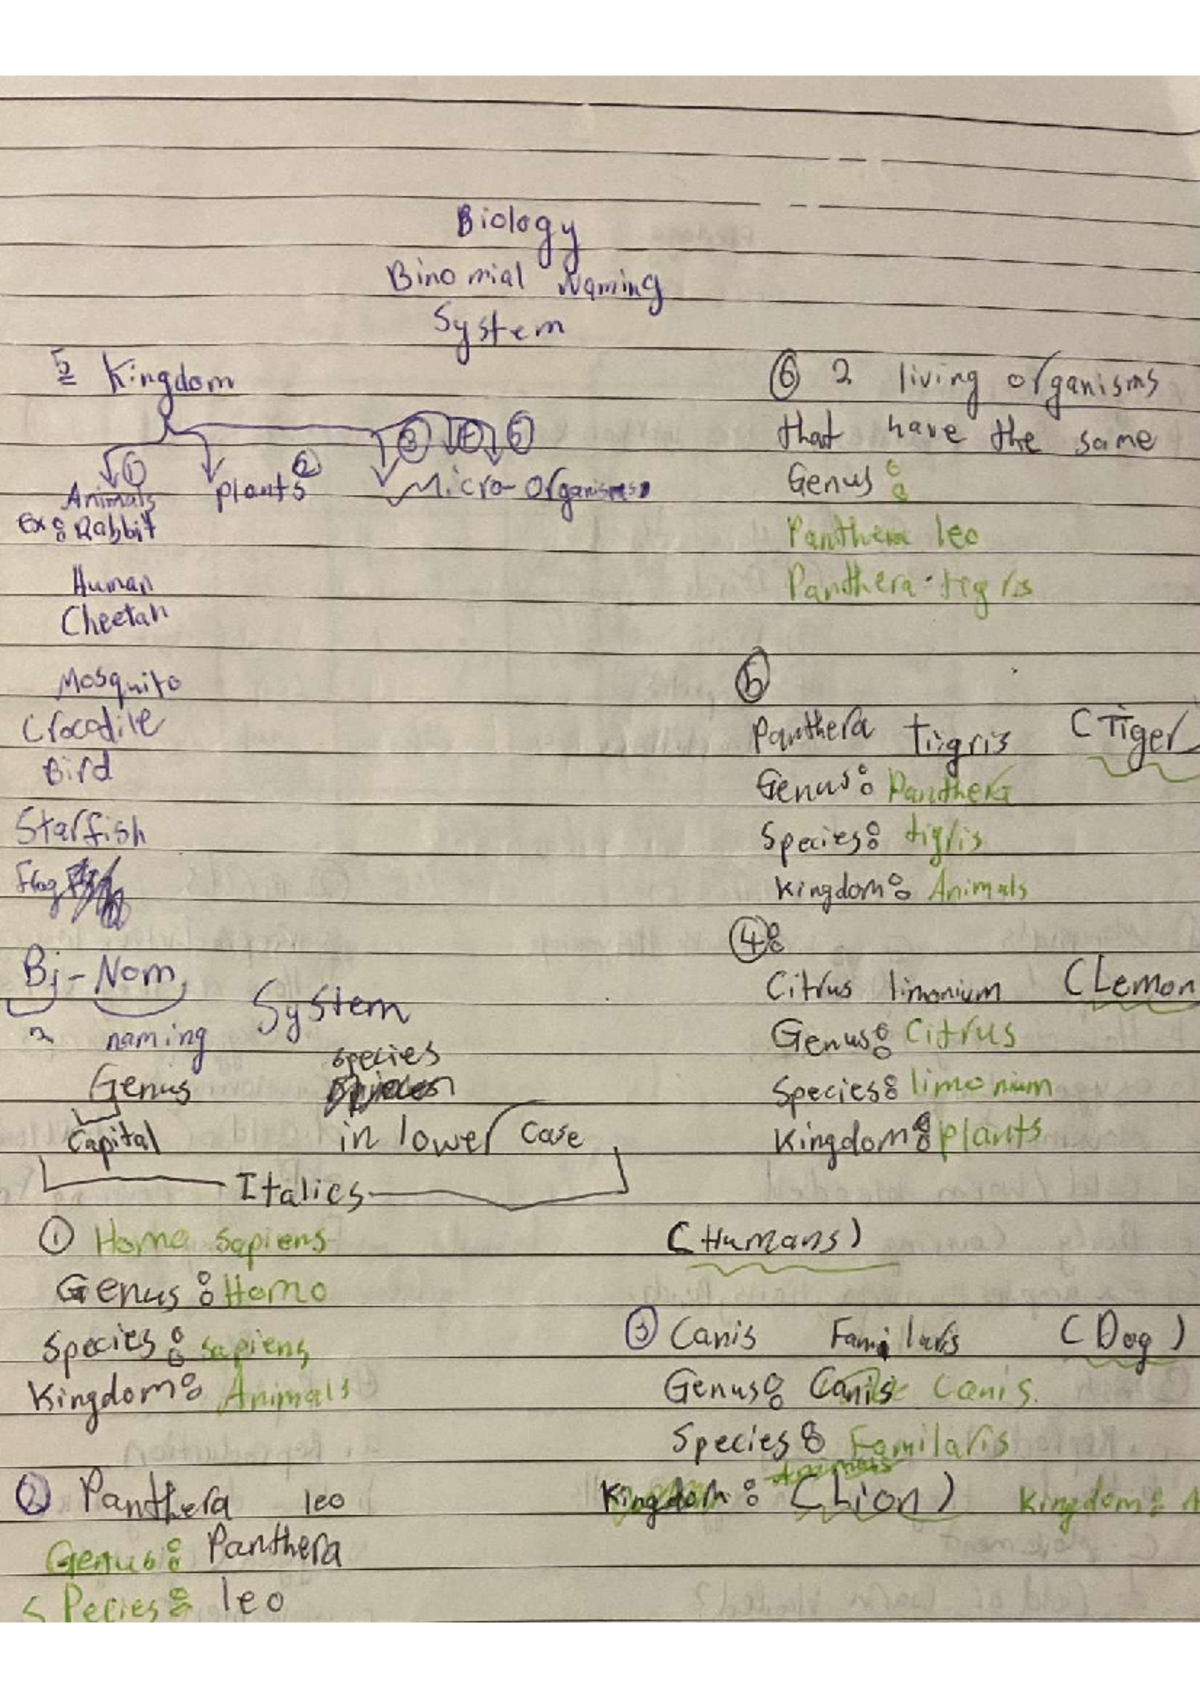 Biology
Binomial Naming
System
5 Kingdom
① ② ③ ④ ⑤
Animals Plants Micro-Organisms
Ex: Rabbit
Human
Cheetah
Mosquito
Crocodile
Bird
Starfish
Frog
Bi-Nom System
2 naming
Genus species
Capital in lower case
Italics
① Homo sapiens (Humans)
Genus: Homo
Species: sapiens
Kingdom: Animals
② Panthera leo (Lion)
Genus: Panthera
Species: leo
Kingdom: A
③ Canis Familaris (Dog)
Genus: Canis Canis.
Species: Familaris
Kingdom: Animals
④:
Citrus limonium (Lemon
Genus: Citrus
Species: limonium
Kingdom: plants
⑤
Panthera tigris (Tiger
Genus: Panthera
Species: tigris
Kingdom: Animals
⑥ 2 living organisms
that have the same
Genus:
Panthera leo
Panthera tigris